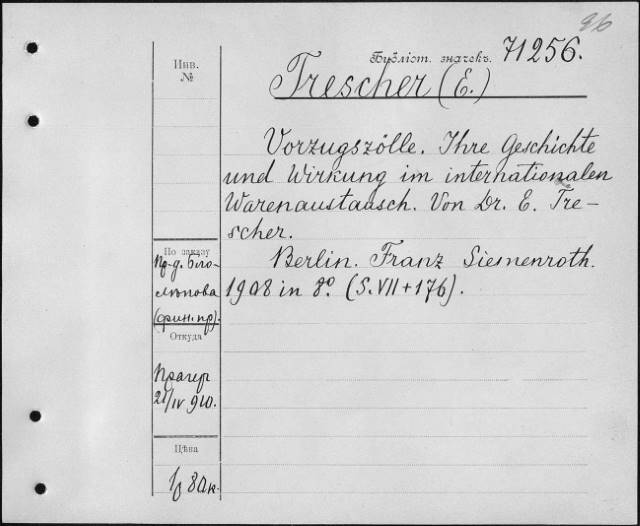 96
Библіот. значекъ. 71256.
Инв.
№
Trescher (E.)
Vorzugszölle. Ihre Geschichte
und Wirkung im internationalen
Warenaustausch. Von Dr. E. Tre-
scher.
Berlin. Franz Siemenroth.
1908 in 8º. (S. VII + 176).
По заказу
Пр-д. Бого-
лѣпова
(фин. пр).
Откуда
Прагер
21/IV 910.
Цѣна
80 к.